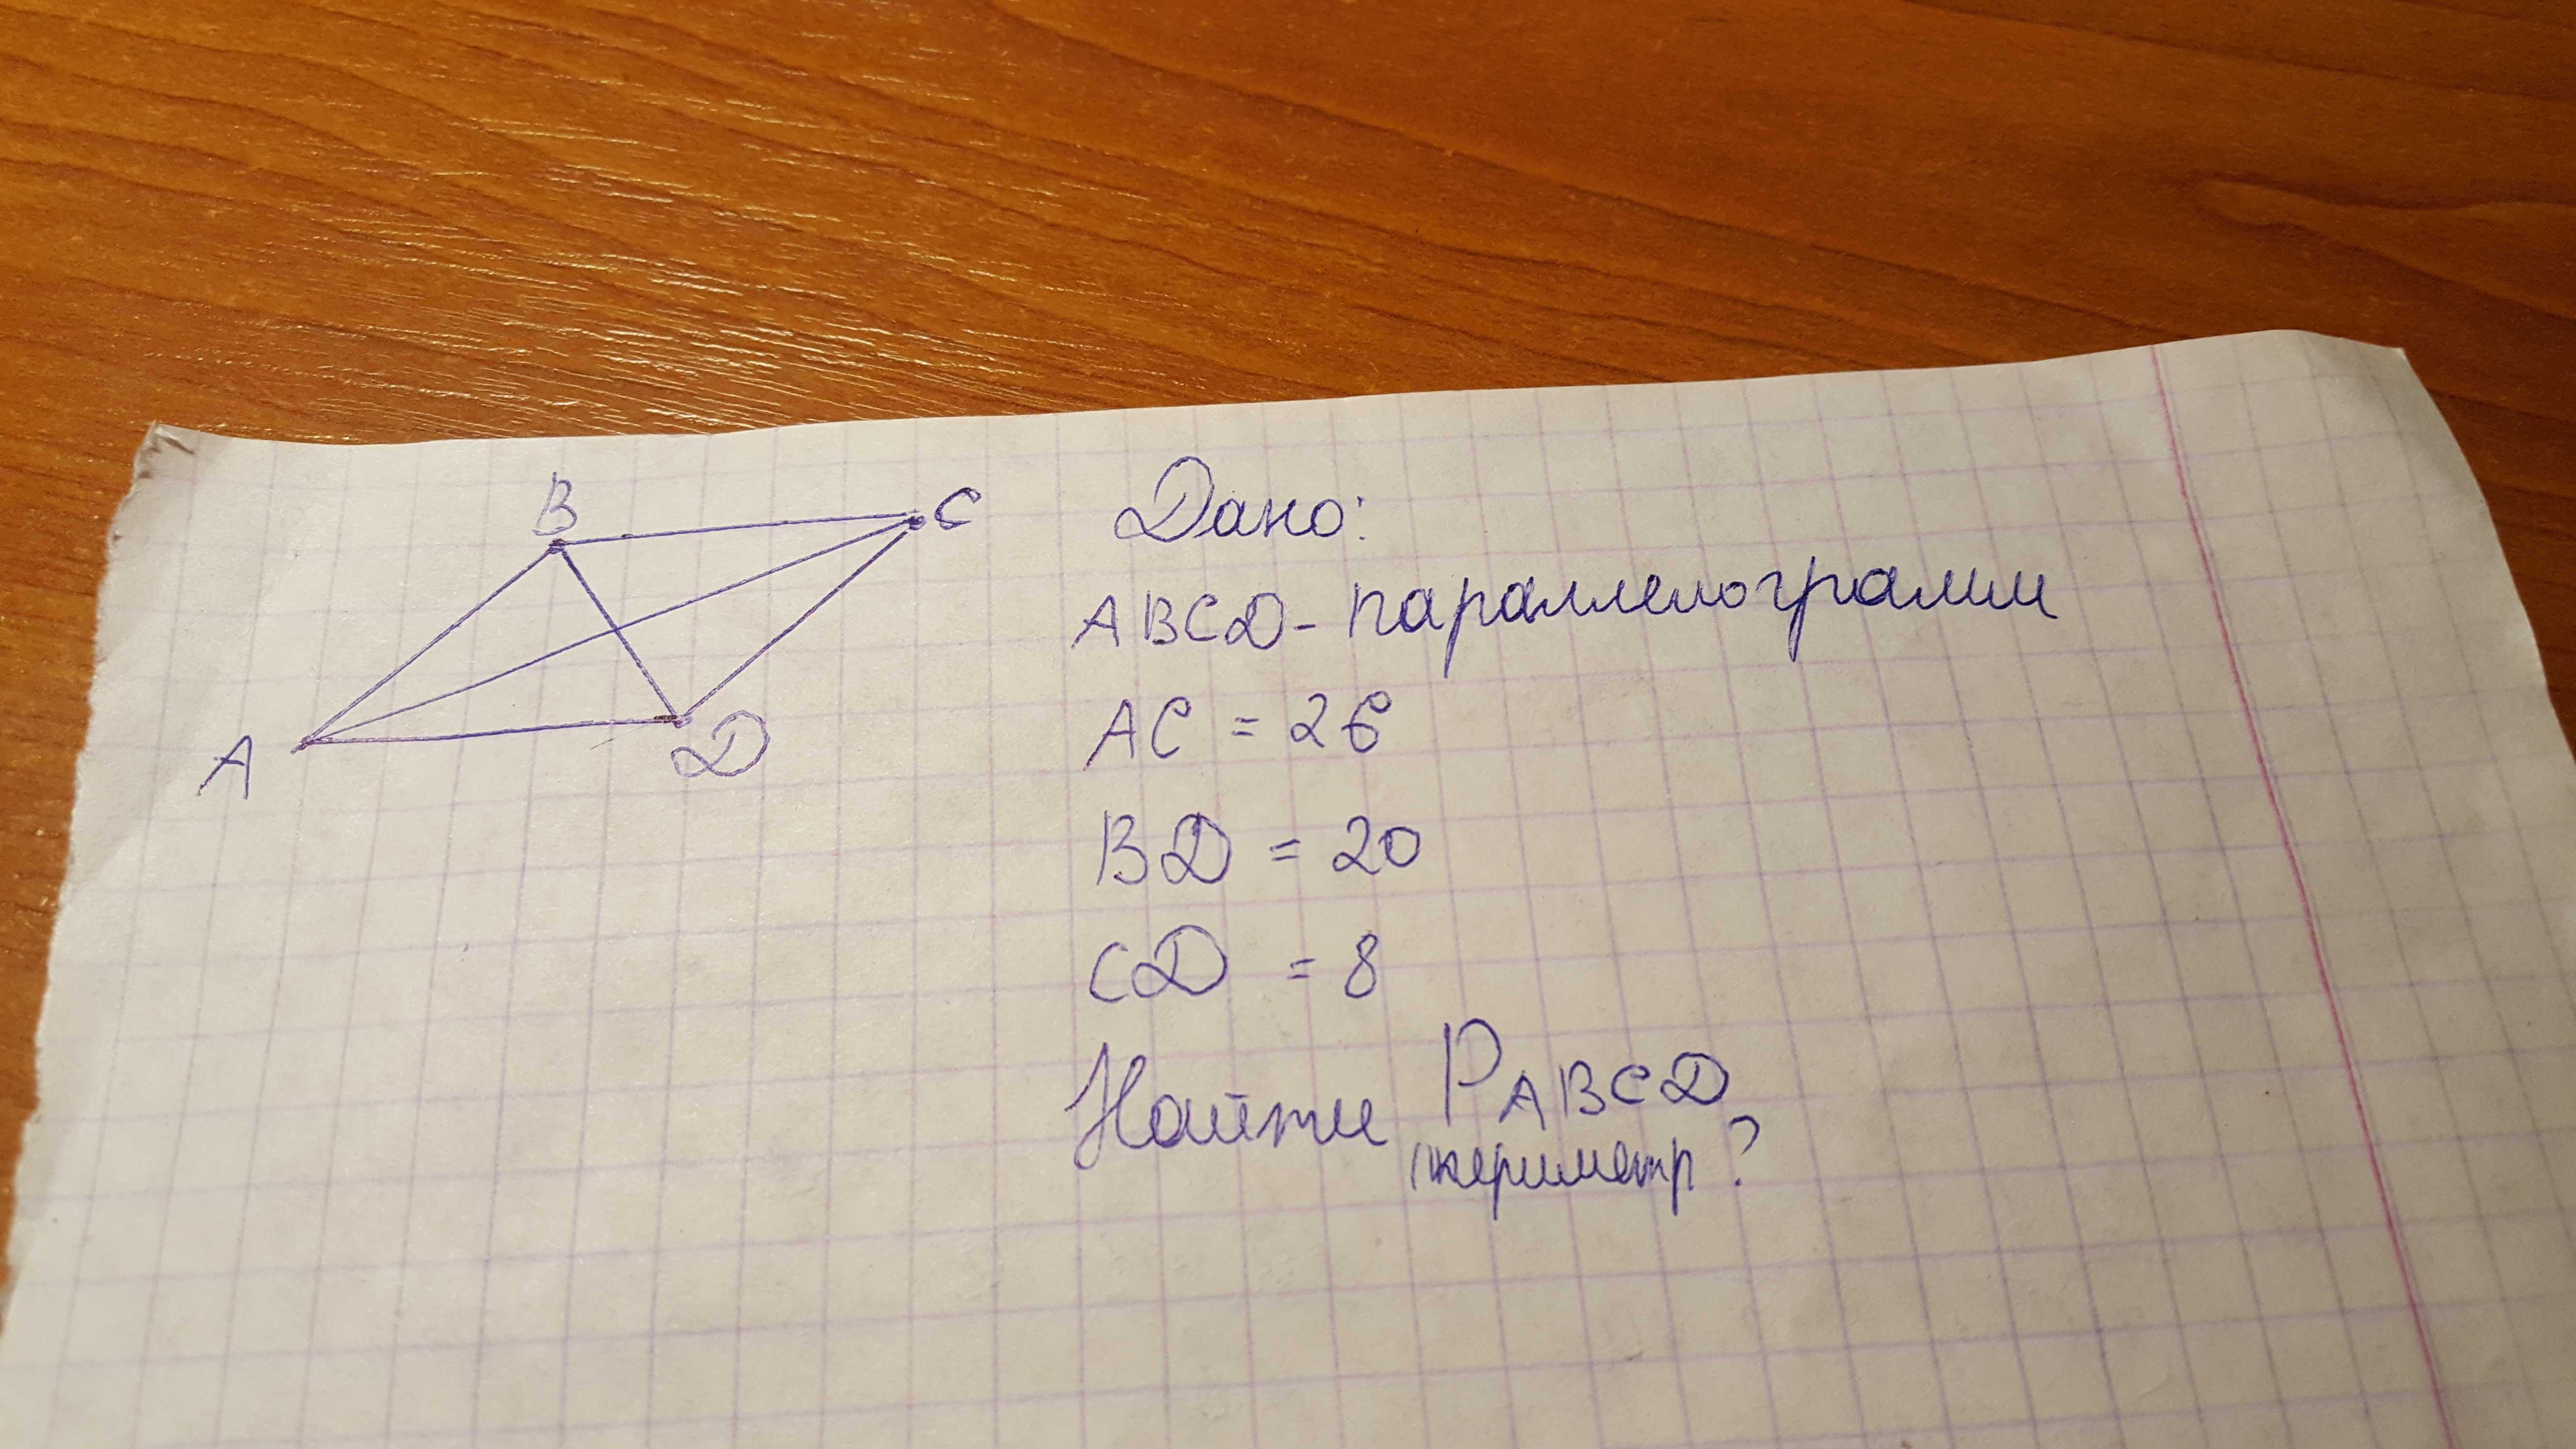 B
C
A
D
Дано:
ABCD - параллелограмм
AC = 26
BD = 20
CD = 8
Найти P ABCD
периметр ?